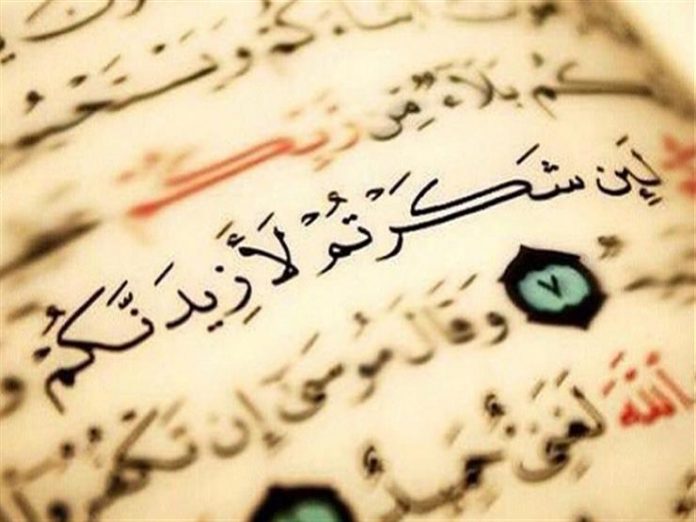 أَبْنَاءَكُمْ وَيَسْتَحْيُونَ
كُم بَلَاءٌ مِّن رَّبِّكُمْ
لَئِن شَكَرْتُمْ لَأَزِيدَنَّكُمْ
٧ وَقَالَ مُوسَى إِن تَكْفُرُوا
اللَّهَ لَغَنِيٌّ حَمِيدٌ